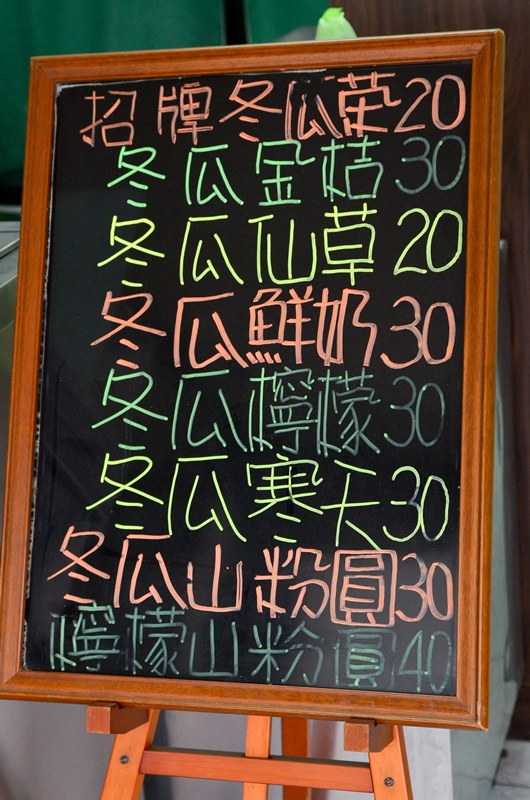 招牌冬瓜茶20
冬瓜金桔30
冬瓜仙草20
冬瓜鮮奶30
冬瓜檸檬30
冬瓜寒天30
冬瓜山粉圓30
檸檬山粉圓40